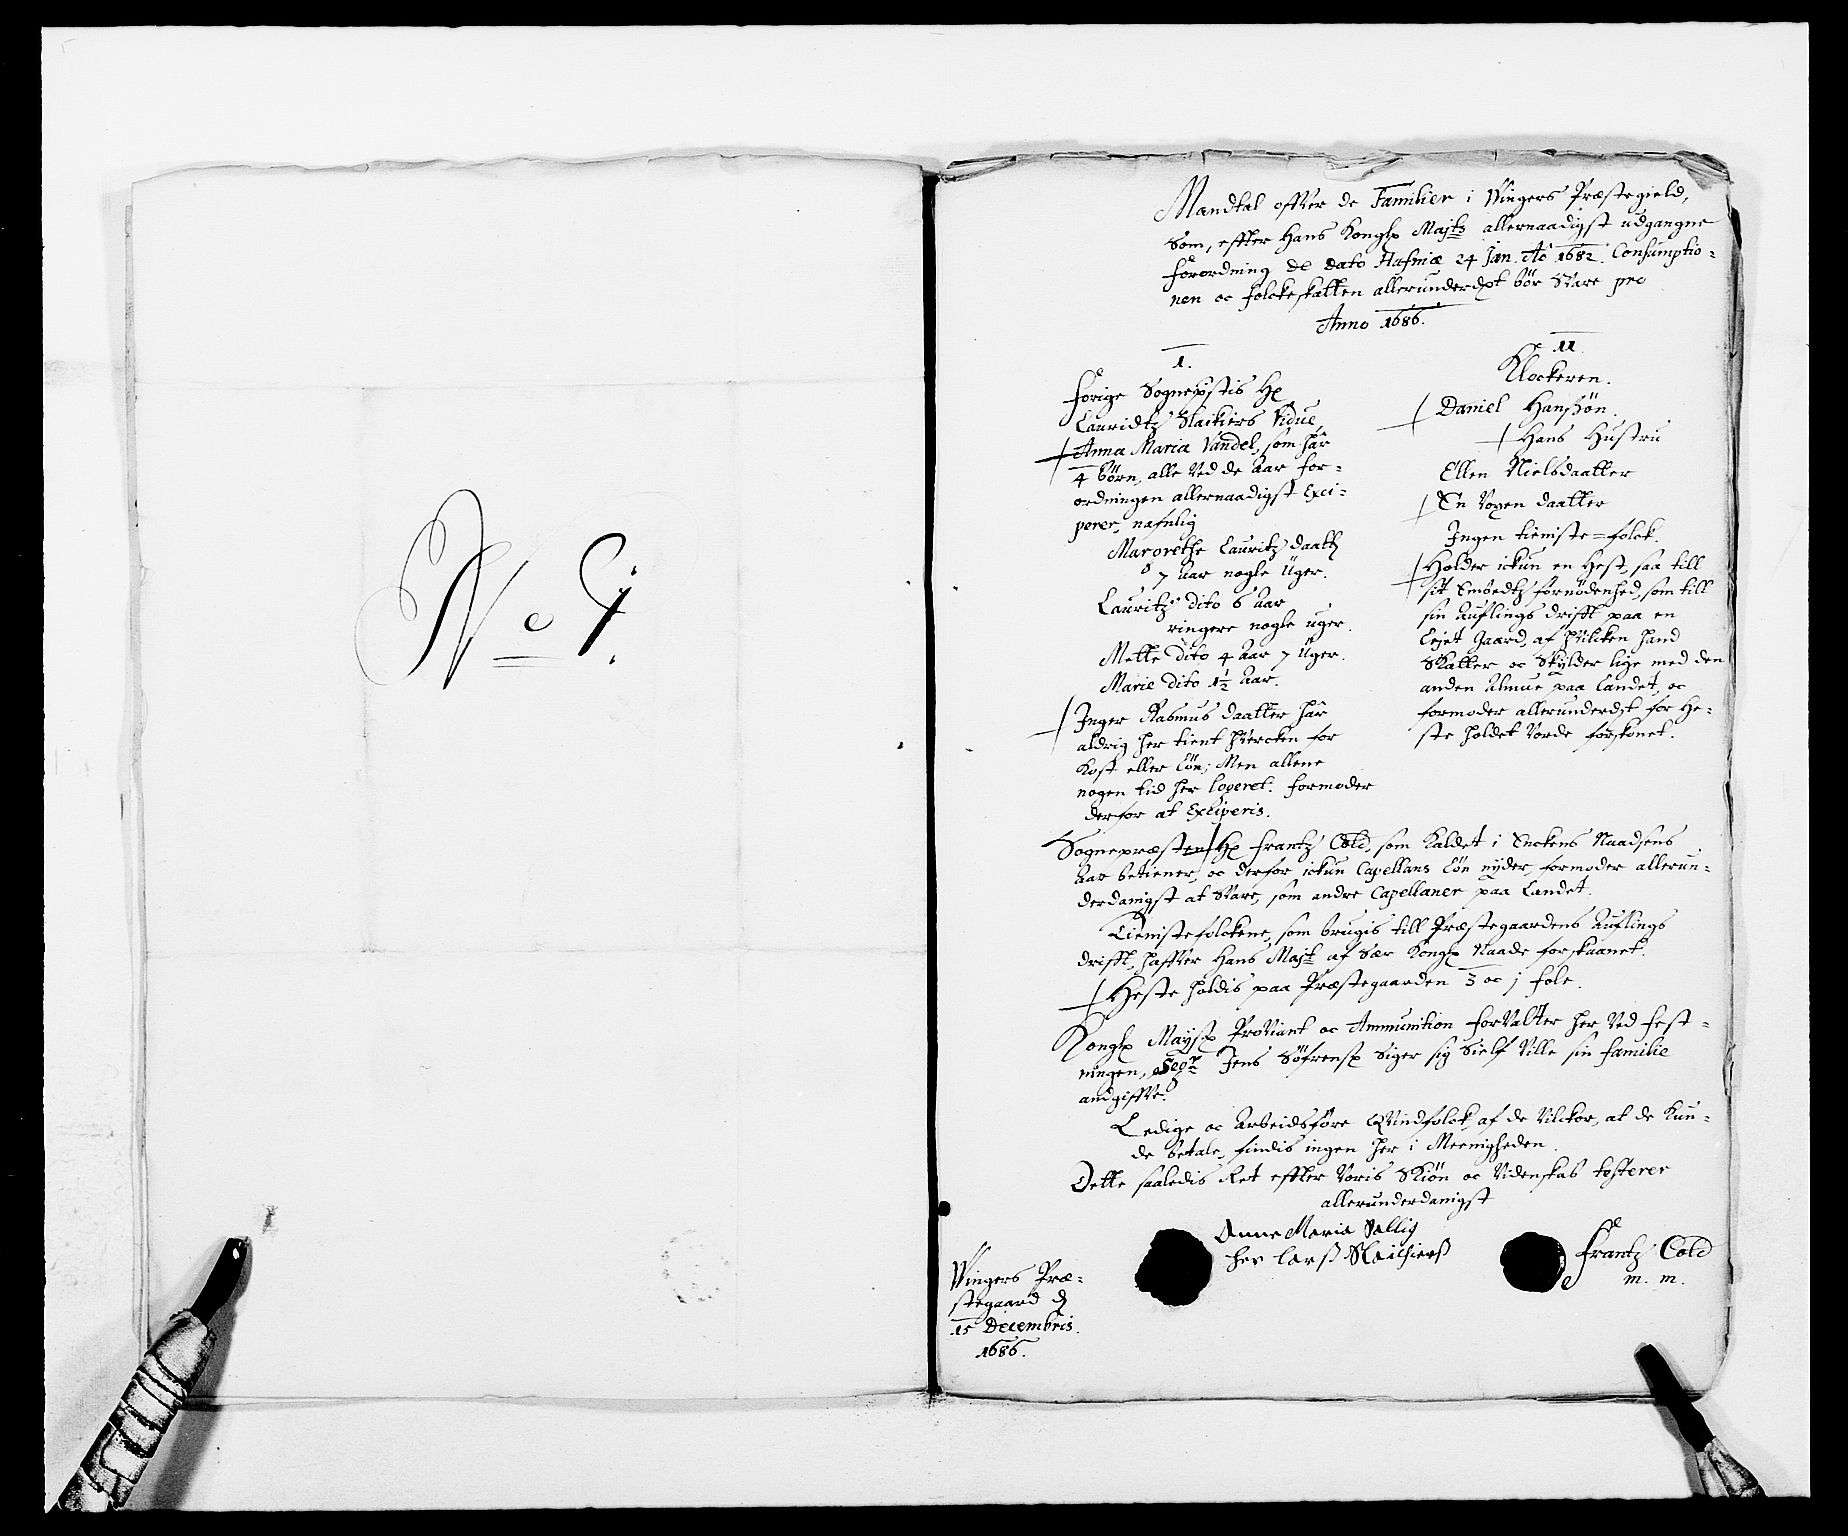 No 9.
Mandtal offver de Familier i Wingers Præstegield,
Som, effter Hans Kongl Majts allernaadigst udgangne
forordning de dato Hafniæ 24 Jan. Ao 1682. Consumptio-
nen oc folckeskatten allerunderdgt bør Svare pro
Anno 1686.
1.
forige Sognepstis Hr
Lauridtz Slackiers Vidue
Anna Maria Vandel, som har
4 børn, alle ved de Aar for-
ordningen allernaadigst Exci-
perer, nafnlig
Margrethe Lauritz daatt
7 Aar nogle Uger.
Lauritz dito 6 Aar
ringere nogle uger.
Mette dito 4 Aar 7 Uger.
Marie dito 1½ Aar.
Inger Rasmus daatter har
aldrig her tient hvercken for
Kost eller Løn; Men allene
nogen tid her loperet. formoder
derfor at Exciperis.
11
Klockeren.
Daniel Hanssøn.
Hans Hustru
Ellen Nielsdaatter
En Voxen daatter
Ingen tieniste=folck.
Holder ickun en Hest, saa till
sit Embedtz fornødenhed, som till
sin Auflings drifft paa en
Lejet Gaard, af hvilcken hand
Skatter oc Skylder lige med den
anden Almue paa Landet, oc
formoder allerunderdst for He-
ste holdet Vorde forskonet.
Sognepræsten Hr Frantz Cold, som Kaldet i Enckens Naadsens
Aar betiener, oc derfor ickun Capellans Løn nyder, formoder allerun-
derdanigst at Svare, som andre Capellaner paa Landet.
Tienistefolckene, som brugis till Præstegaardens Auflings
drifft, haffver Hans Majt af Sær Kongl Naade forskaanet.
Heste holdis paa Præstegaarden 3 oc j fole.
Kongl Mays Proviant oc Ammunition forvalter her ved fest-
ningen, Jens Søfrens Siger sig Sielf Ville sin familie
andgiffve.
Ledige oc Arbeidsføre Qvindfolck, af de Vilckor, at de Kun-
de betale, findis ingen her i Meenigheden.
Dette saaledis Ret effter Voris Skiøn oc Videnskab testerer
allerunderdanigst
Anne Maria Sallig
her larss Slackiers
Frantz Cold
m. m.
Wingers Præ-
stegaard d
15 Decembris.
1686.